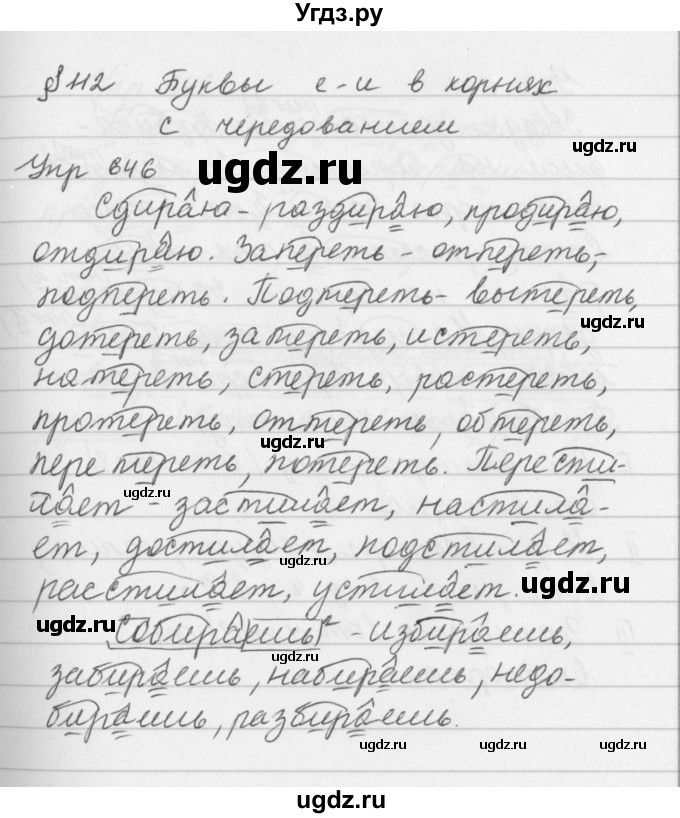 Угдз.ру
§ 112 Буквы е-и в корнях
с чередованием
Упр 646
ugdz.ru
Сдираю - раздираю, продираю,
отдираю. Запереть - отпереть,
подпереть. Подтереть - вытереть,
ugdz.ru
дотереть, затереть, истереть,
натереть, стереть, растереть,
протереть, оттереть, обтереть,
ugdz.ru
перетереть, потереть. Перести-
ugdz.ru
лает - застилает, настила-
ет, достилает, подстилает,
расстилает, устилает.
ugdz.ru
ugdz.ru
Собираешь² - избираешь,
забираешь, набираешь, недо-
бираешь, разбираешь.
ugdz.ru
ugdz.ru
ugdz.ru
ugdz.ru